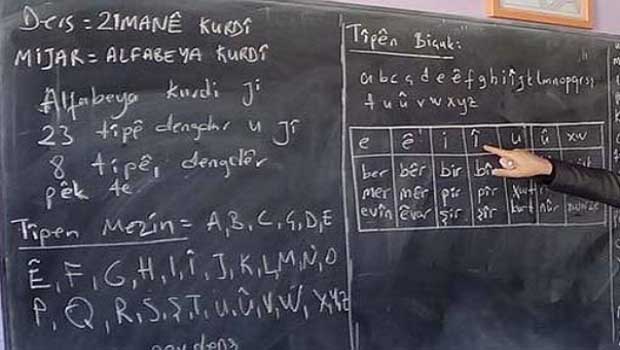 Ders = ZIMANÊ KURDÎ
MIJAR = ALFABEYA KURDÎ
Alfabeya kurdi ji
23 tîpê dengdar u Jî
8 tîpê, dengdêr
pêk te
Tîpen Mezin = A, B, C, Ç, D, E
Ê, F, G, H, I, Î, J, K, L, M, N, O
P, Q, R, S, Ş, T, U, Û, V, W, X, Y, Z
Tîpên Biçuk:
a b c ç d e ê f g h i î j k l m n o p q r s ş
t u û v w x y z
e ê i î u û xw
ber bêr bir
mer mêr pir pîr
evîn êvar şir şîr kurt nûr